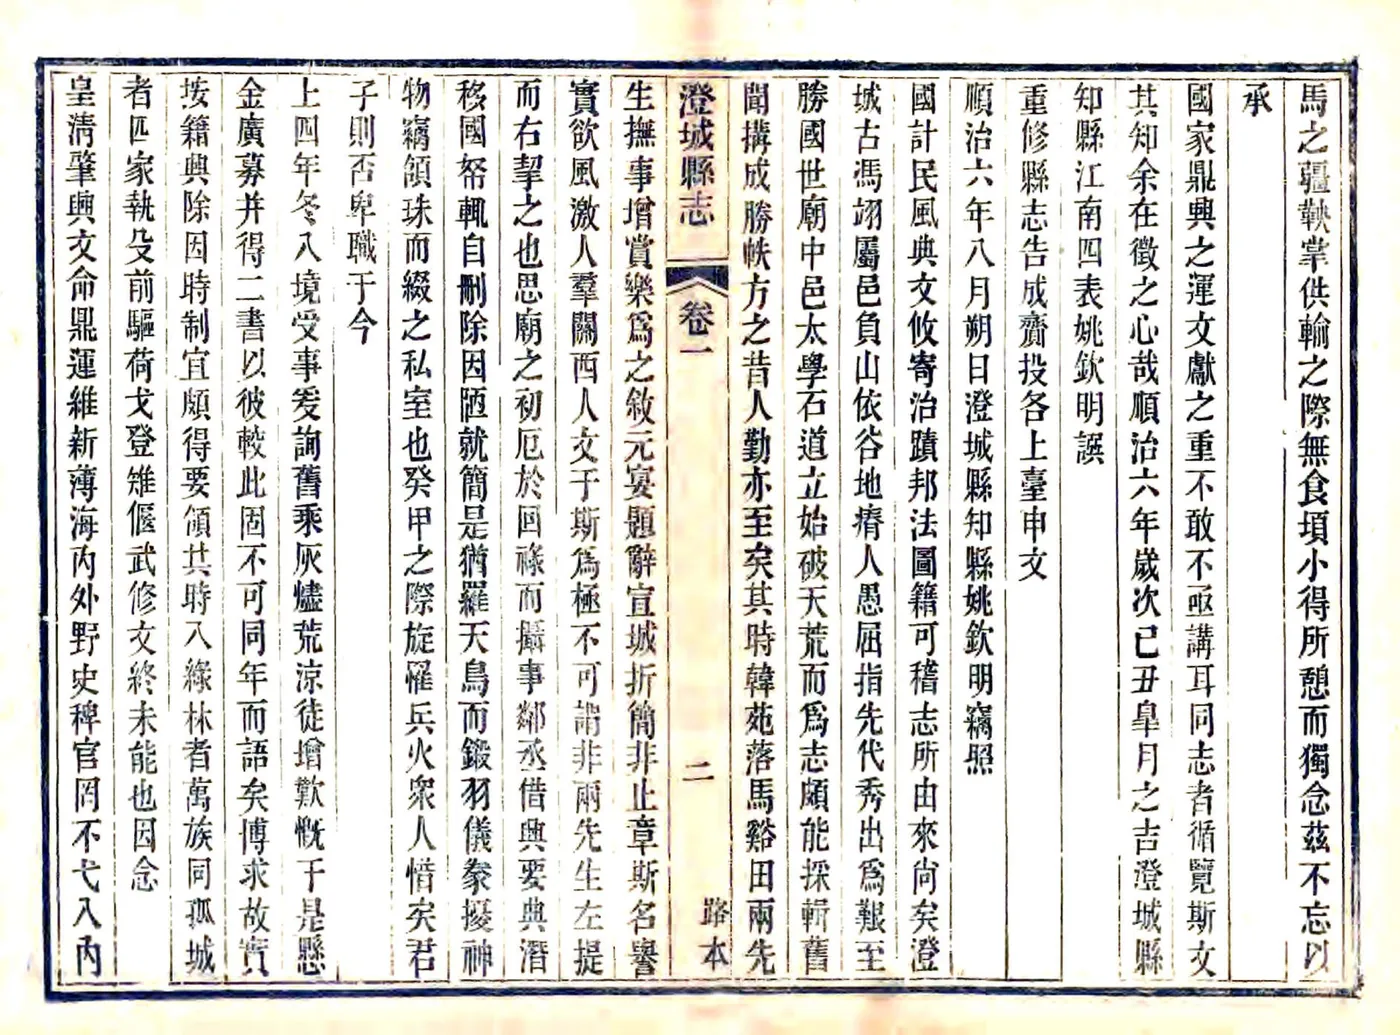 馬之疆鞅掌供輸之際無食頃小得所憩而獨念茲不忘以
承
國家鼎興之運文獻之重不敢不亟講耳同志者循覽斯文
其知余在徵之心哉順治六年歲次己丑皐月之吉澄城縣
知縣江南四表姚欽明譔
重修縣志告成賫投各上臺申文
順治六年八月朔日澄城縣知縣姚欽明竊照
國計民風典文攸寄治蹟邦法圖籍可稽志所由來尚矣澄
城古馮翊屬邑負山依谷地瘠人愚屈指先代秀出爲艱至
勝國世廟中邑太學石道立始破天荒而爲志頗能採輯舊
聞搆成勝帙方之昔人勤亦至矣其時韓苑落馬谿田兩先
澄城縣志
卷一
二
路本
生撫事增賞樂爲之敘元宴題辭宣城折簡非止章斯名譽
實欲風激人羣關西人文于斯爲極不可謂非兩先生左提
而右挈之也思廟之初厄於回祿而攝事鄰丞借興要典潛
移國帑輒自刪除因陋就簡是猶羅天鳥而鎩羽儀豢擾神
物竊頷珠而綴之私室也癸甲之際旋罹兵火衆人惜矣君
子則否卑職于今
上四年冬入境受事爰詢舊乘灰燼荒涼徒增歎慨于是懸
金廣募并得二書以彼較此固不可同年而語矣博求故實
按籍興除因時制宜頗得要領其時入綠林者萬族同孤城
者匹家執殳前驅荷戈登雉偃武修文終未能也因念
皇清肇興文命鼎運維新薄海內外野史稗官罔不弋入內